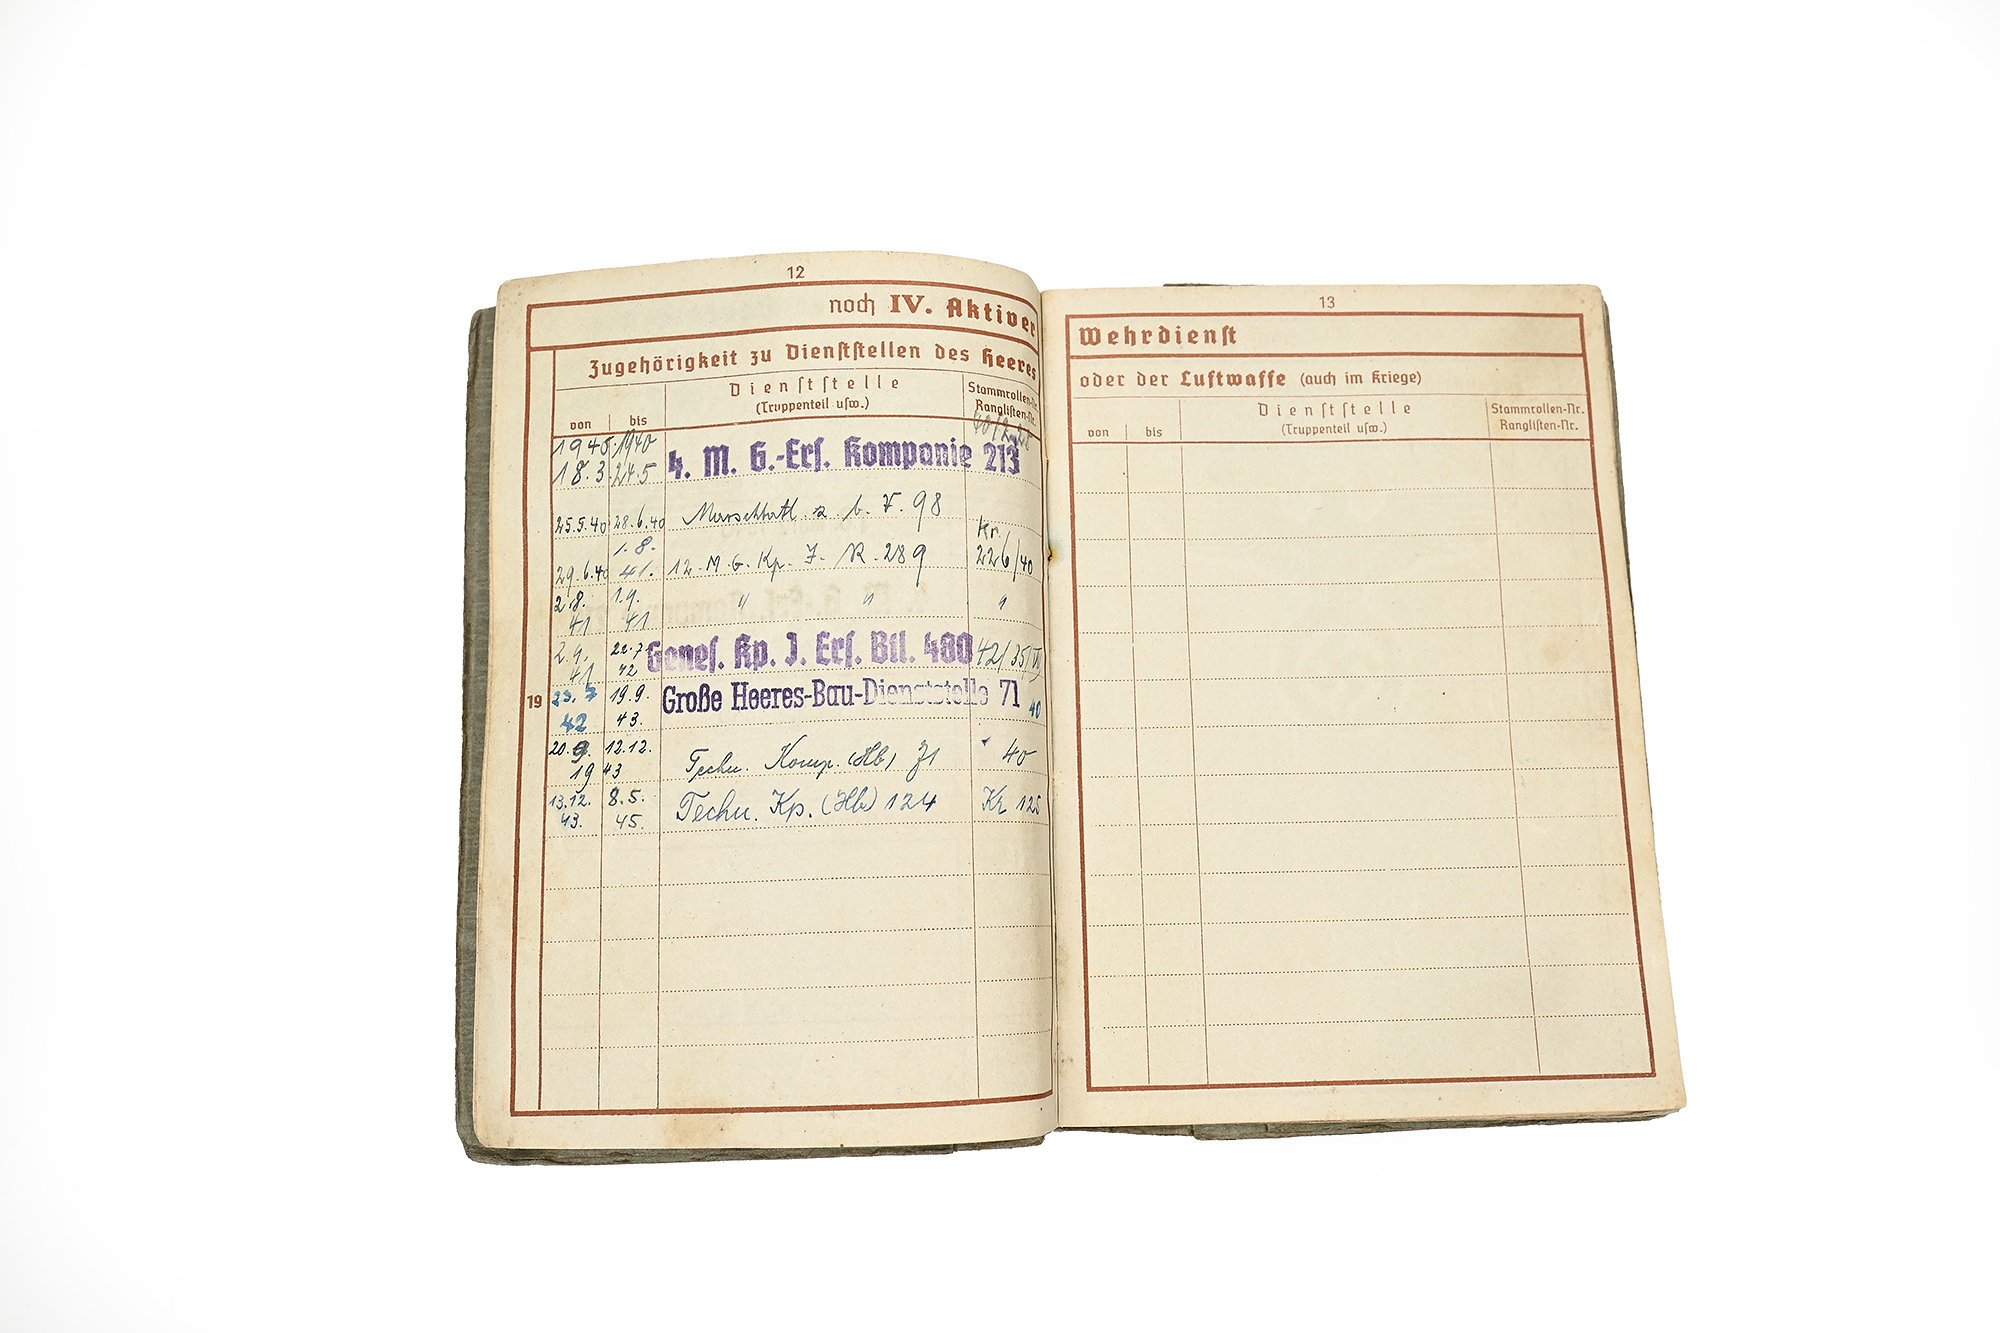 12
noch IV. Aktiver
Zugehörigkeit zu Dienststellen des Heeres
von bis
Dienststelle
(Truppenteil usw.)
Stammrollen-Nr.
Ranglisten-Nr.
1940 1940
18.3. 24.5
4. M. G.-Ers. Kompanie 213
25.5.40 28.6.40 Marschbatl. z. b. V. 98
1.8.
29.6.40 41. 12. M. G. Kp. J. R. 289
Kr.
226/40
2.8. 1.9. " " "
41 41
2.9. 22.7
41 42
Genes. Kp. J. Ers. Btl. 480 42/35/
19
23.7 19.9.
42 43.
Große Heeres-Bau-Dienststelle 71 40
20.9. 12.12.
19 43
Techn. Komp. (Hb) 71 40
13.12. 8.5.
43. 45.
Techn. Kp. (Hb) 124 Kr 125
13
Wehrdienst
oder der Luftwaffe (auch im Kriege)
von bis
Dienststelle
(Truppenteil usw.)
Stammrollen-Nr.
Ranglisten-Nr.